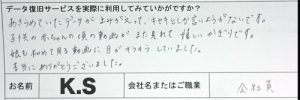 データ復旧サービスを実際に利用してみていかがですか?
あきらめていたデータがよみがえって、キセキとしか言いようがないです。
子供の赤ちゃんの頃の動画がまた見れて嬉しいかぎりです。
娘も初めて見る動画に目がキラキラしていました。
本当にありがとうございました。
お名前 K.S 会社名またはご職業 会社員